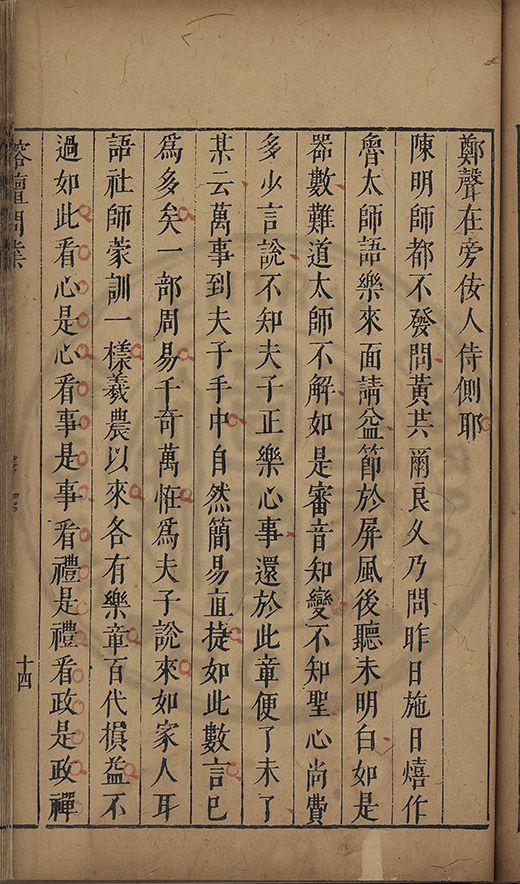 鄭聲在旁佞人侍側耶
陳明師都不發問黃共爾良久乃問昨日施日熺作
魯太師語樂來面請益節於屏風後聽未明白如是
器數難道太師不解如是審音知變不知聖心尚費
多少言說不知夫子正樂心事還於此章便了未了
某云萬事到夫子手中自然簡易直捷如此數言已
爲多矣一部周易千奇萬恠爲夫子說來如家人耳
語社師蒙訓一樣羲農以來各有樂章百代損益不
過如此看心是心看事是事看禮是禮看政是政禪
榕壇問業
十四